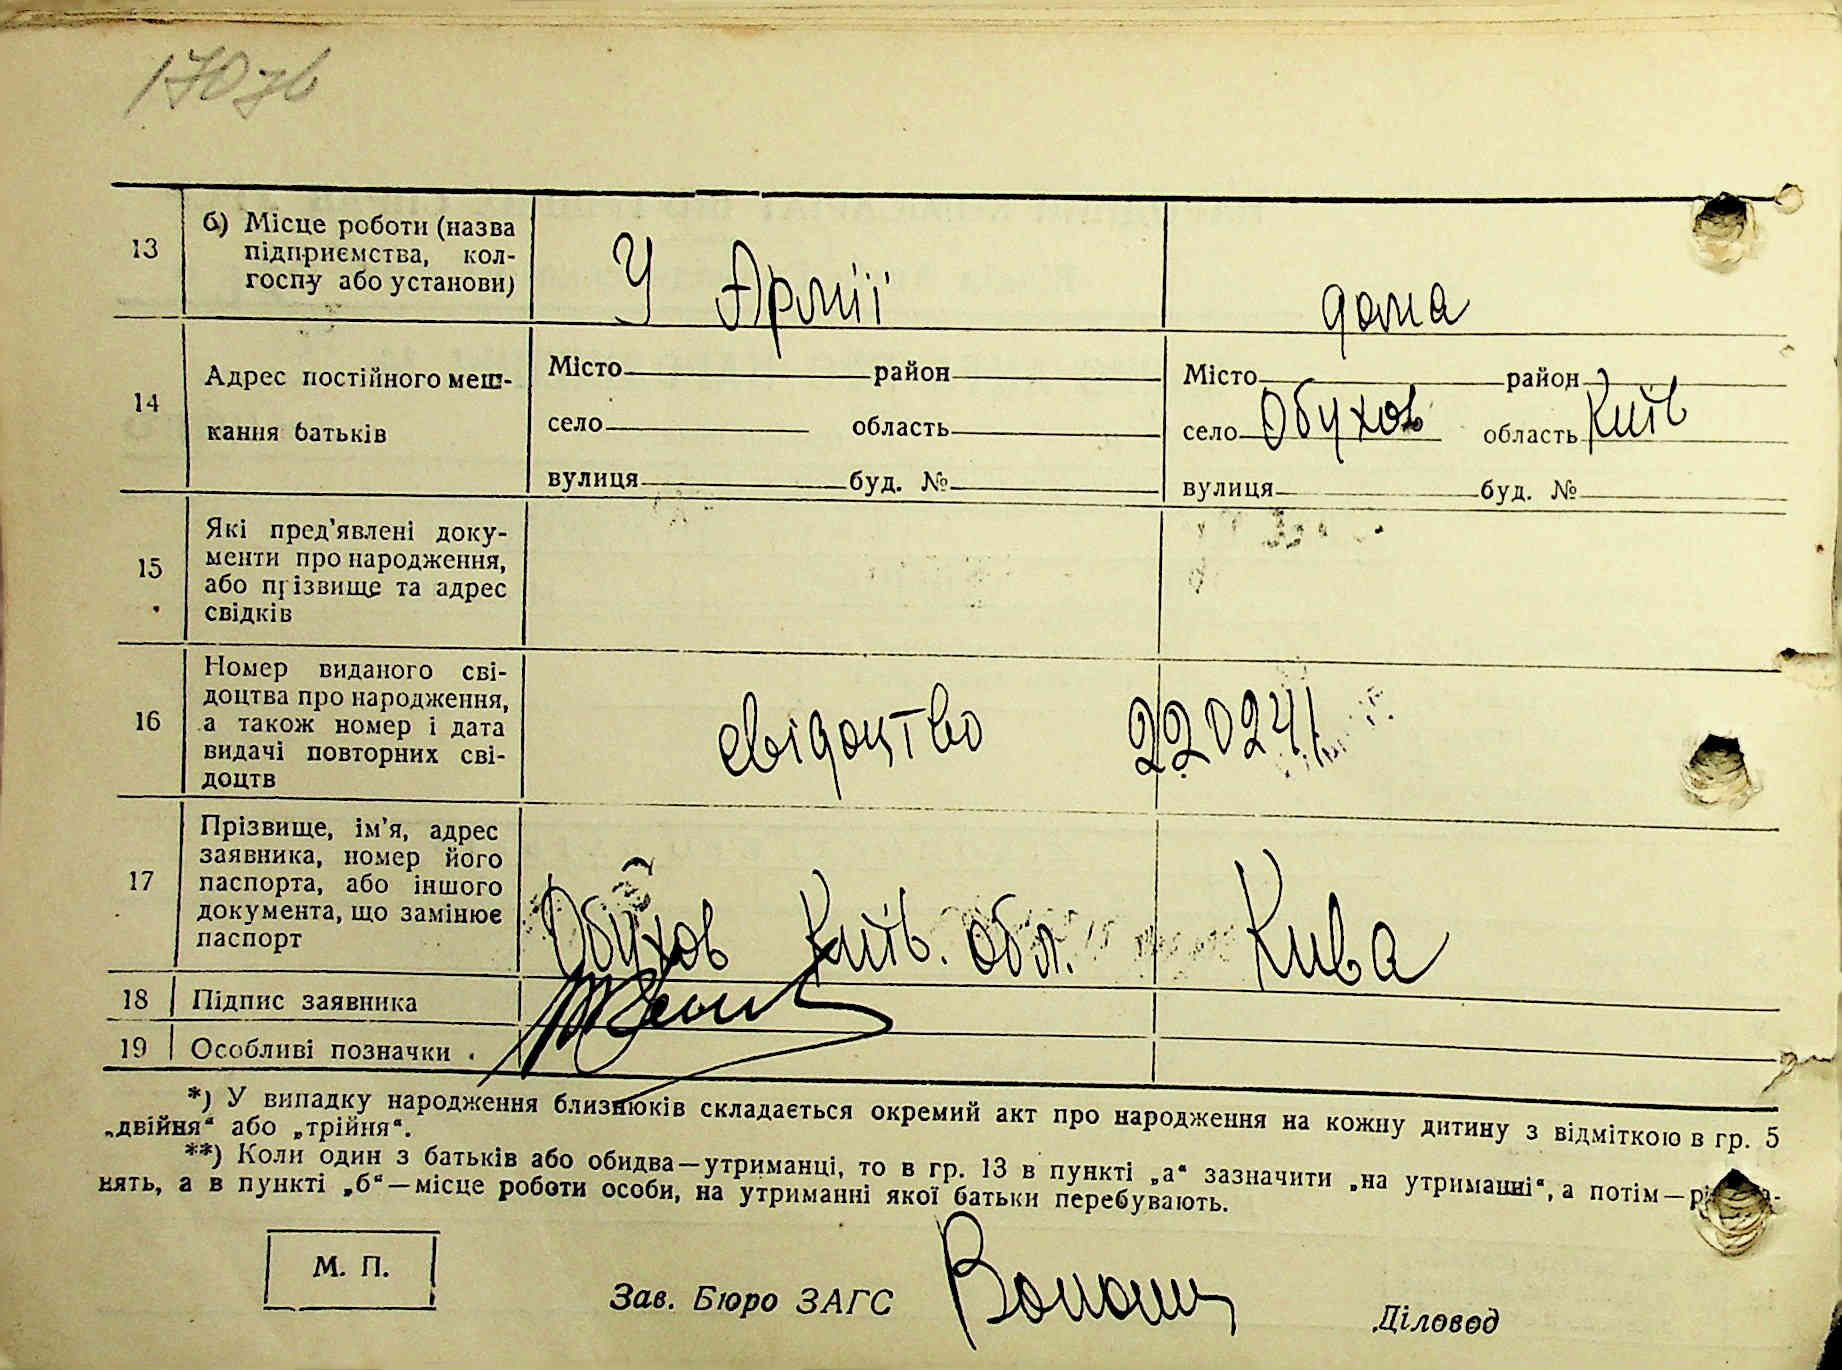 170зв
13
б) Місце роботи (назва
підприємства, кол-
госпу або установи)
У Армії
дома
14
Адрес постійного меш-
кання батьків
Місто район
село область
вулиця буд. №
Місто район
село Обухов область Київ
вулиця буд. №
15
Які пред'явлені доку-
менти про народження,
або прізвище та адрес
свідків
16
Номер виданого сві-
доцтва про народження,
а також номер і дата
видачі повторних сві-
доцтв
свідоцтво 220241
17
Прізвище, ім'я, адрес
заявника, номер його
паспорта, або іншого
документа, що замінює
паспорт
Обухов Київ. обл. Кива
18 Підпис заявника
19 Особливі позначки
*) У випадку народження близнюків складається окремий акт про народження на кожну дитину з відміткою в гр. 5
„двійня“ або „трійня“.
**) Коли один з батьків або обидва—утриманці, то в гр. 13 в пункті „а“ зазначити „на утриманні“, а потім—
нять, а в пункті „б“—місце роботи особи, на утриманні якої батьки перебувають.
М. П.
Зав. Бюро ЗАГС
Діловод